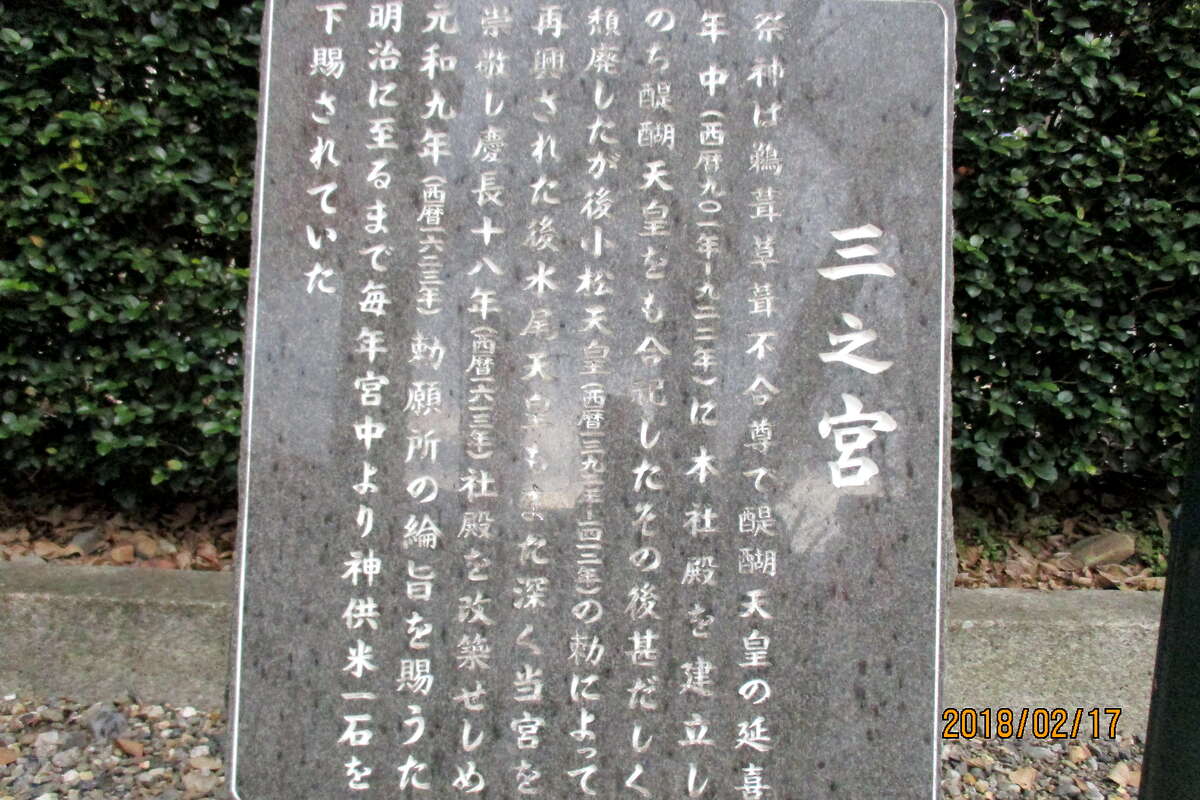 三之宮
祭神は鵜葺草葺不合尊で醍醐天皇の延喜
年中(西暦九〇一年-九二二年)に本社殿を建立し
のち醍醐天皇をも合祀したその後甚だしく
頽廃したが後小松天皇(西暦一三九二年-一四一二年)の勅によって
再興された後水尾天皇もまた深く当宮を
崇敬し慶長十八年(西暦一六一三年)社殿を改築せしめ
元和九年(西暦一六二三年)勅願所の綸旨を賜うた
明治に至るまで毎年宮中より神供米一石を
下賜されていた
2018/02/17